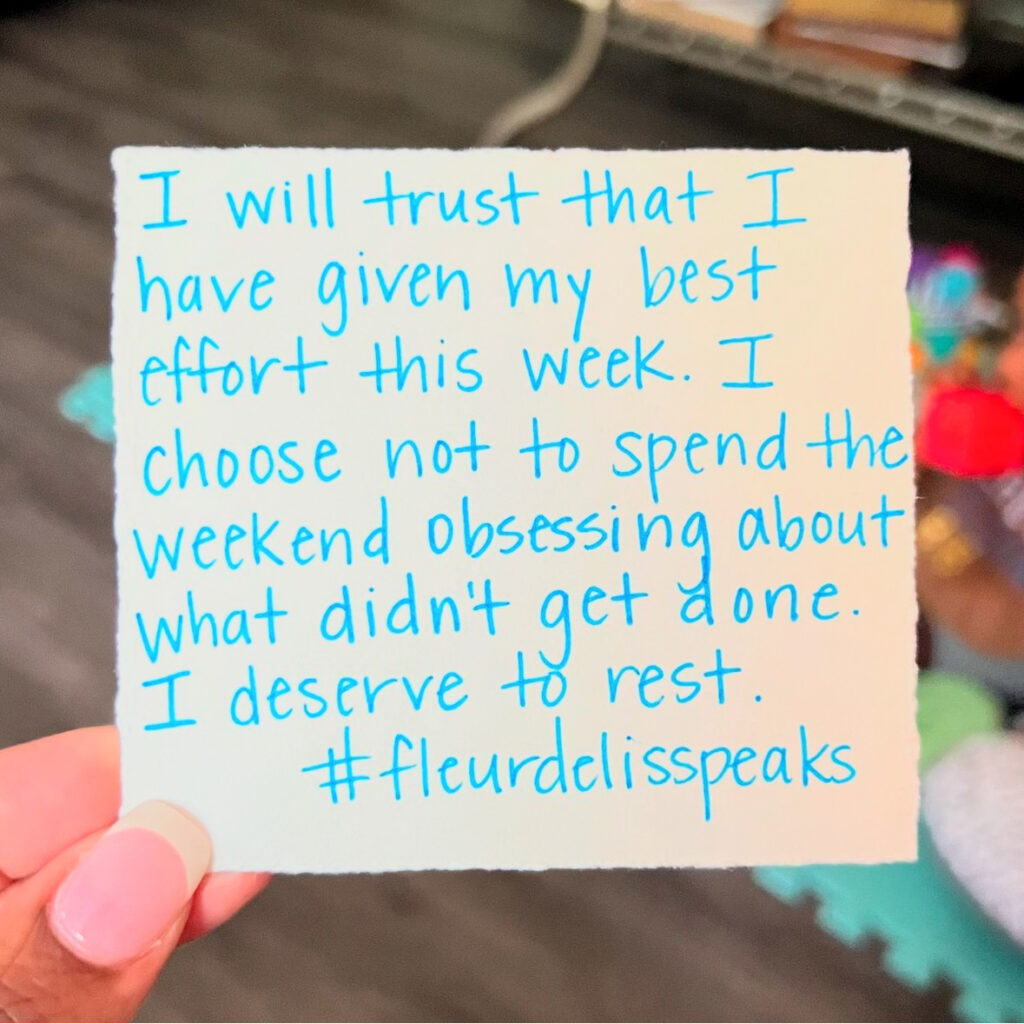 I will trust that I
have given my best
effort this week. I
choose not to spend the
weekend obsessing about
what didn't get done.
I deserve to rest.
#fleurdelisspeaks